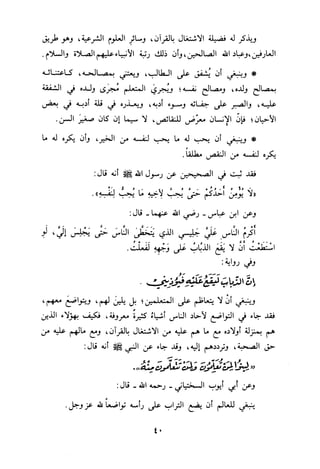 ويذكر له فضيلة الاشتغال بالقرآن، وسائر العلوم الشرعية، وهو طريق
العارفين، وعباد الله الصالحين، وأن ذلك رتبة الأنبياء عليهم الصلاة والسلام.
* وينبغي أن يُشفق على الطالب، ويعتني بمصالحه، كاعتنائه
بمصالح ولده، ومصالح نفسه؛ ويُجري المتعلم مُجرى ولده في الشفقة
عليه، والصبر على جفائه وسوء أدبه، ويعذره في قلة أدبه في بعض
الأحيان؛ فإن الإنسان مُعرض للنقائص، لا سيما إن كان صغير السن.
* وينبغي أن يحب له ما يحب لنفسه من الخير، وأن يكره له ما
يكره لنفسه من النقص مطلقاً.
فقد ثبت في الصحيحين عن رسول الله ﷺ أنه قال:
«لا يُؤْمِنُ أَحَدُكُمْ حَتى يُحِبُّ لأخِيهِ مَا يُحِبُّ لِنَفْسِهِ».
وعن ابن عباس - رضي الله عنهما - قال:
أَكْرَمُ النَّاسِ عَلَيَّ جَلِيسِي الَّذِي يَتَخَطَّى النَّاسَ حَتى يَجْلِسَ إِلَيَّ، لَوِ
اسْتَطَعْتُ أَنْ لا يَقَعَ الذُّبَابُ عَلَى وَجْهِهِ لَفَعَلْتُ.
وفي رواية:
إِنَّ الذُّبَابَ لَيَقَعُ عَلَيْهِ فَيُؤْذِينِي.
وينبغي أن لا يتعاظم على المتعلمين، بل يلين لهم، ويتواضع معهم،
فقد جاء في التواضع لآحاد الناس أشياء كثيرة معروفة، فكيف بهؤلاء الذين
هم بمنزلة أولاده، مع ما هم عليه من الاشتغال بالقرآن، مع مالهم عليه من
حق الصحبة، وترددهم إليه، وقد جاء عن النبي ﷺ أنه قال:
«لِينُوا لِمَنْ تُعَلِّمُونَ وَلِمَنْ تَتَعَلَّمُونَ مِنْهُ».
وعن أبي أيوب السختياني - رحمه الله - قال:
ينبغي للعالم أن يضع التراب على رأسه تواضعاً لله عز وجل.
٤٠